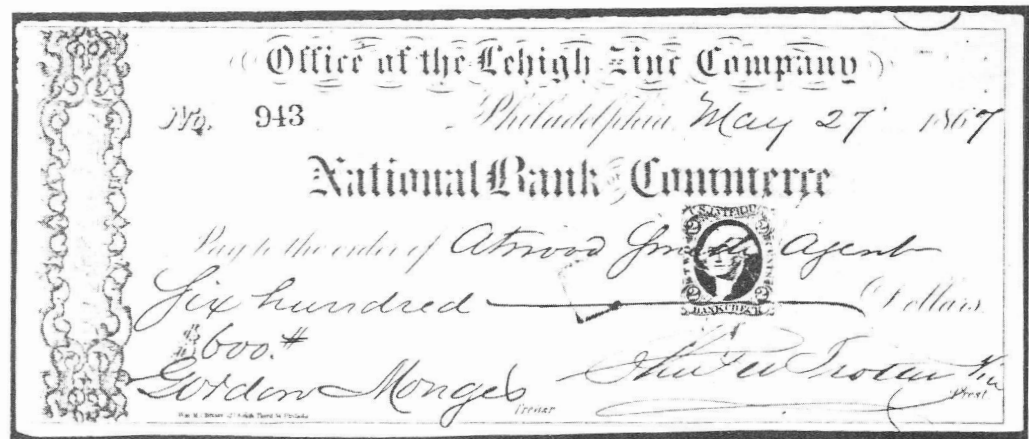 Office of the Lehigh Zinc Company
No. 943 Philadelphia May 27 1867
National Bank of Commerce
Pay to the order of Atwood Smith Agent
Six hundred Dollars
$600.#
Gordon Monges Treasr
Vice Prest
U.S. INTER. REV.
BANK CHECK